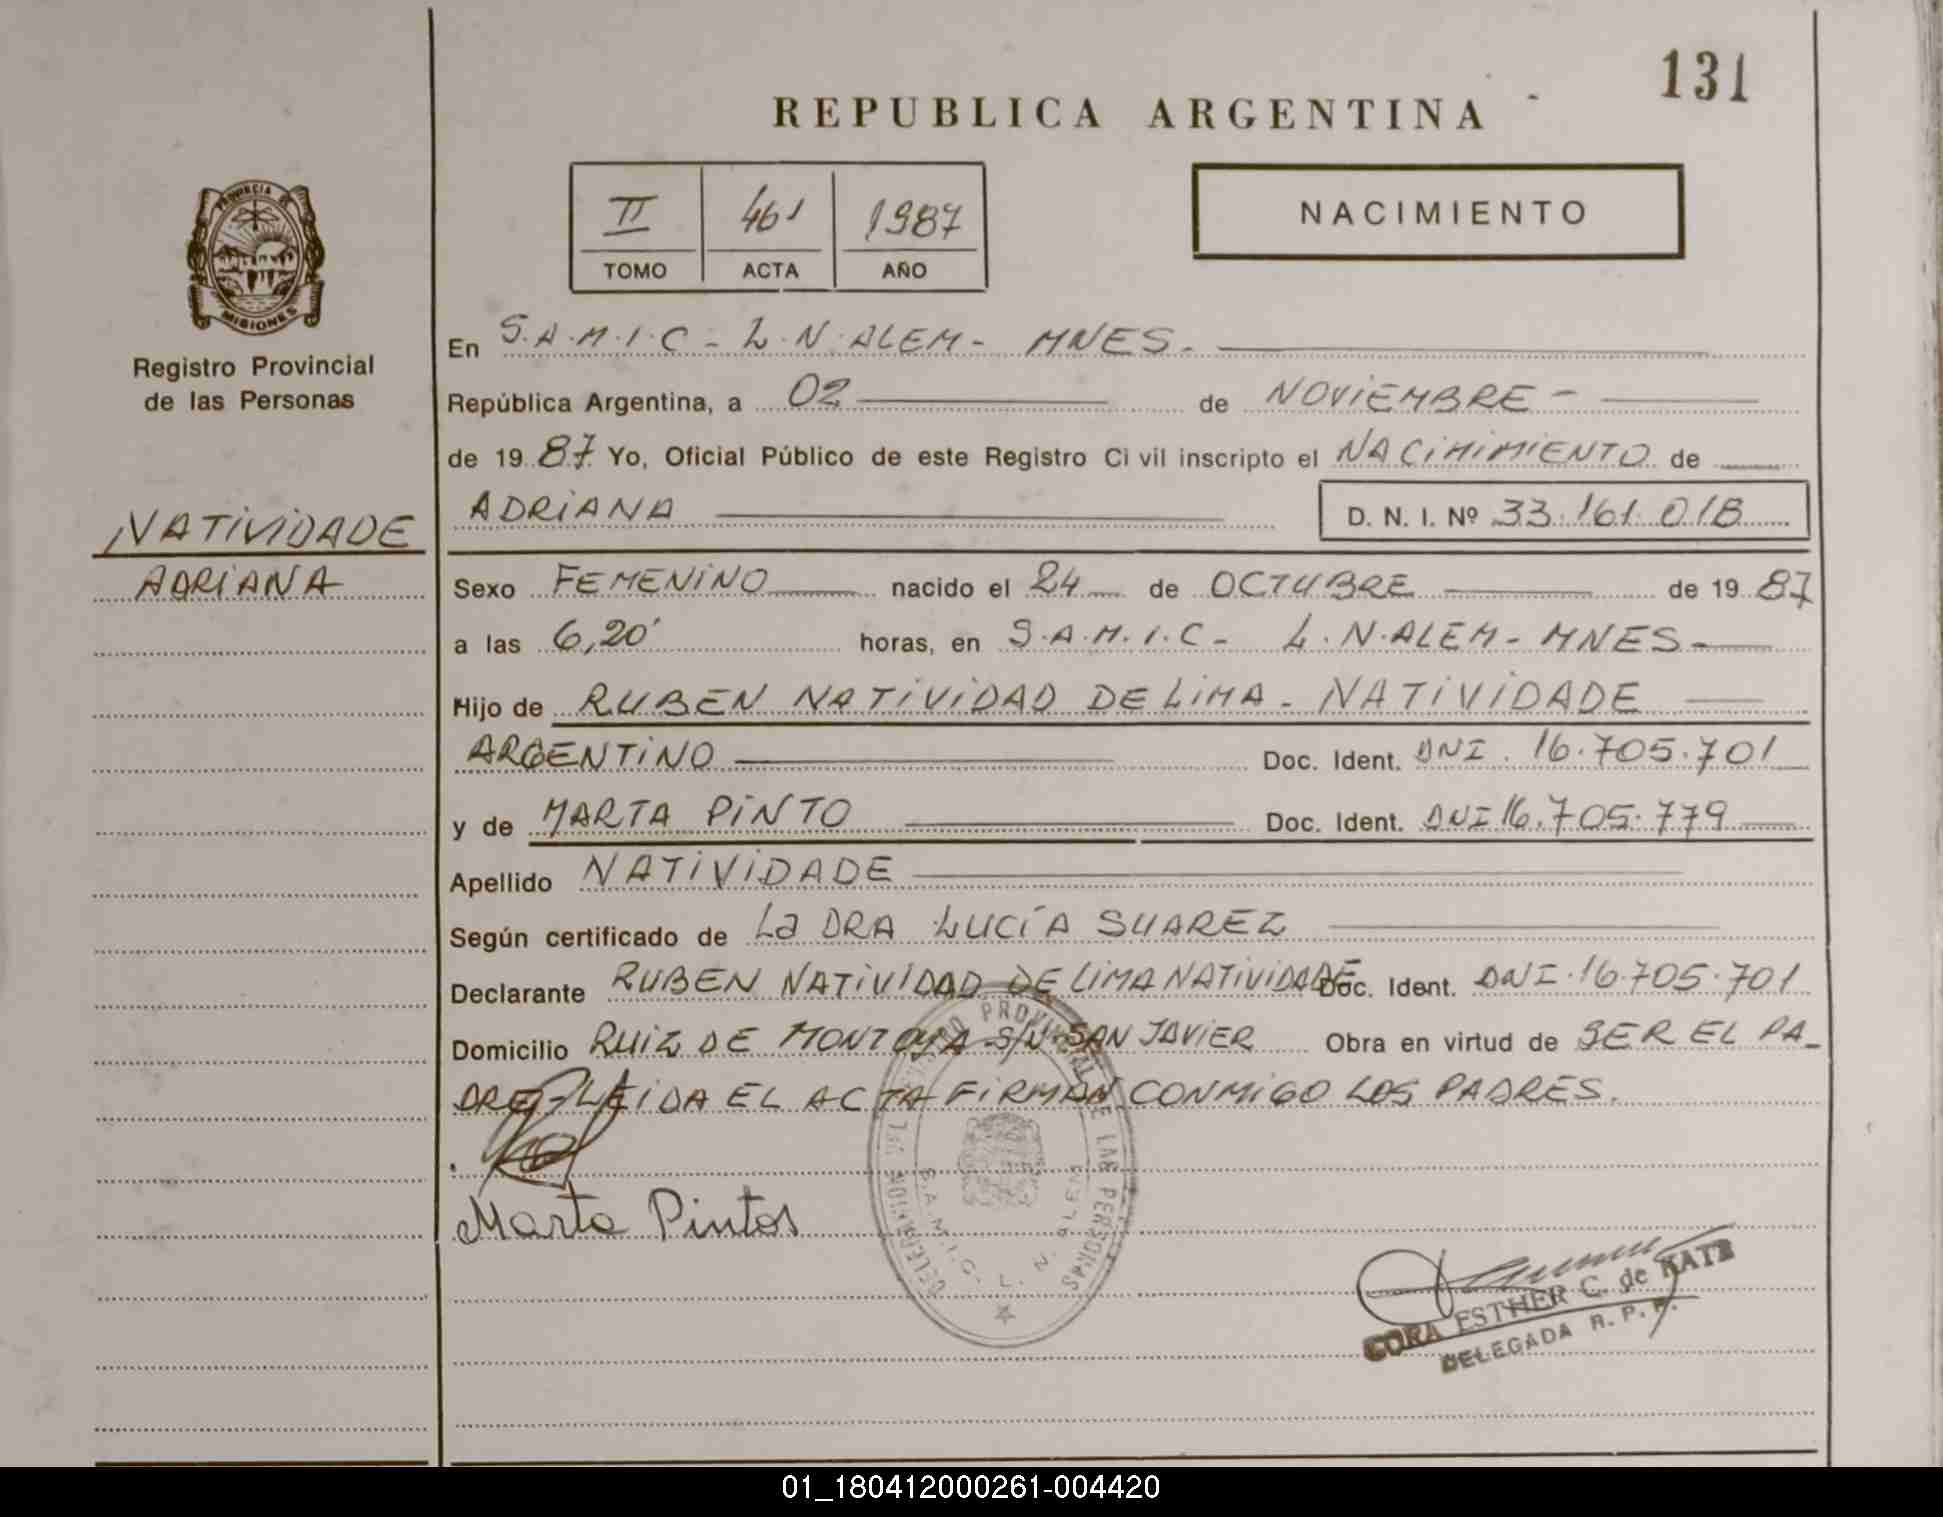 131
REPUBLICA ARGENTINA
II 461 1987
TOMO ACTA AÑO
NACIMIENTO
PROVINCIA DE
MISIONES
Registro Provincial
de las Personas
NATIVIDADE
ADRIANA
En S.A.M.I.C - L.N.ALEM - MNES.
República Argentina, a 02 de NOVIEMBRE -
de 1987 Yo, Oficial Público de este Registro Civil inscripto el NACIMIMIENTO de
ADRIANA D. N. I. Nº 33.161.018
Sexo FEMENINO nacido el 24 de OCTUBRE de 1987
a las 6,20' horas, en S.A.M.I.C - L.N.ALEM - MNES -
Hijo de RUBEN NATIVIDAD DE LIMA - NATIVIDADE
ARGENTINO Doc. Ident. DNI. 16.705.701
y de MARTA PINTO Doc. Ident. DNI 16.705.779
Apellido NATIVIDADE
Según certificado de La DRA LUCÍA SUAREZ
Declarante RUBEN NATIVIDAD DE LIMA NATIVIDADE Doc. Ident. DNI.16.705.701
Domicilio RUIZ DE MONTOYA S/N SAN JAVIER Obra en virtud de SER EL PA-
DRE - LEIDA EL ACTA FIRMAN CONMIGO LOS PADRES.
Marta Pintos
DELEGACION DEL REGISTRO PROVINCIAL DE LAS PERSONAS
S.A.M.I.C. L.N. ALEM
CORA ESTHER C. de KATZ
DELEGADA R. P. P.
01_180412000261-004420